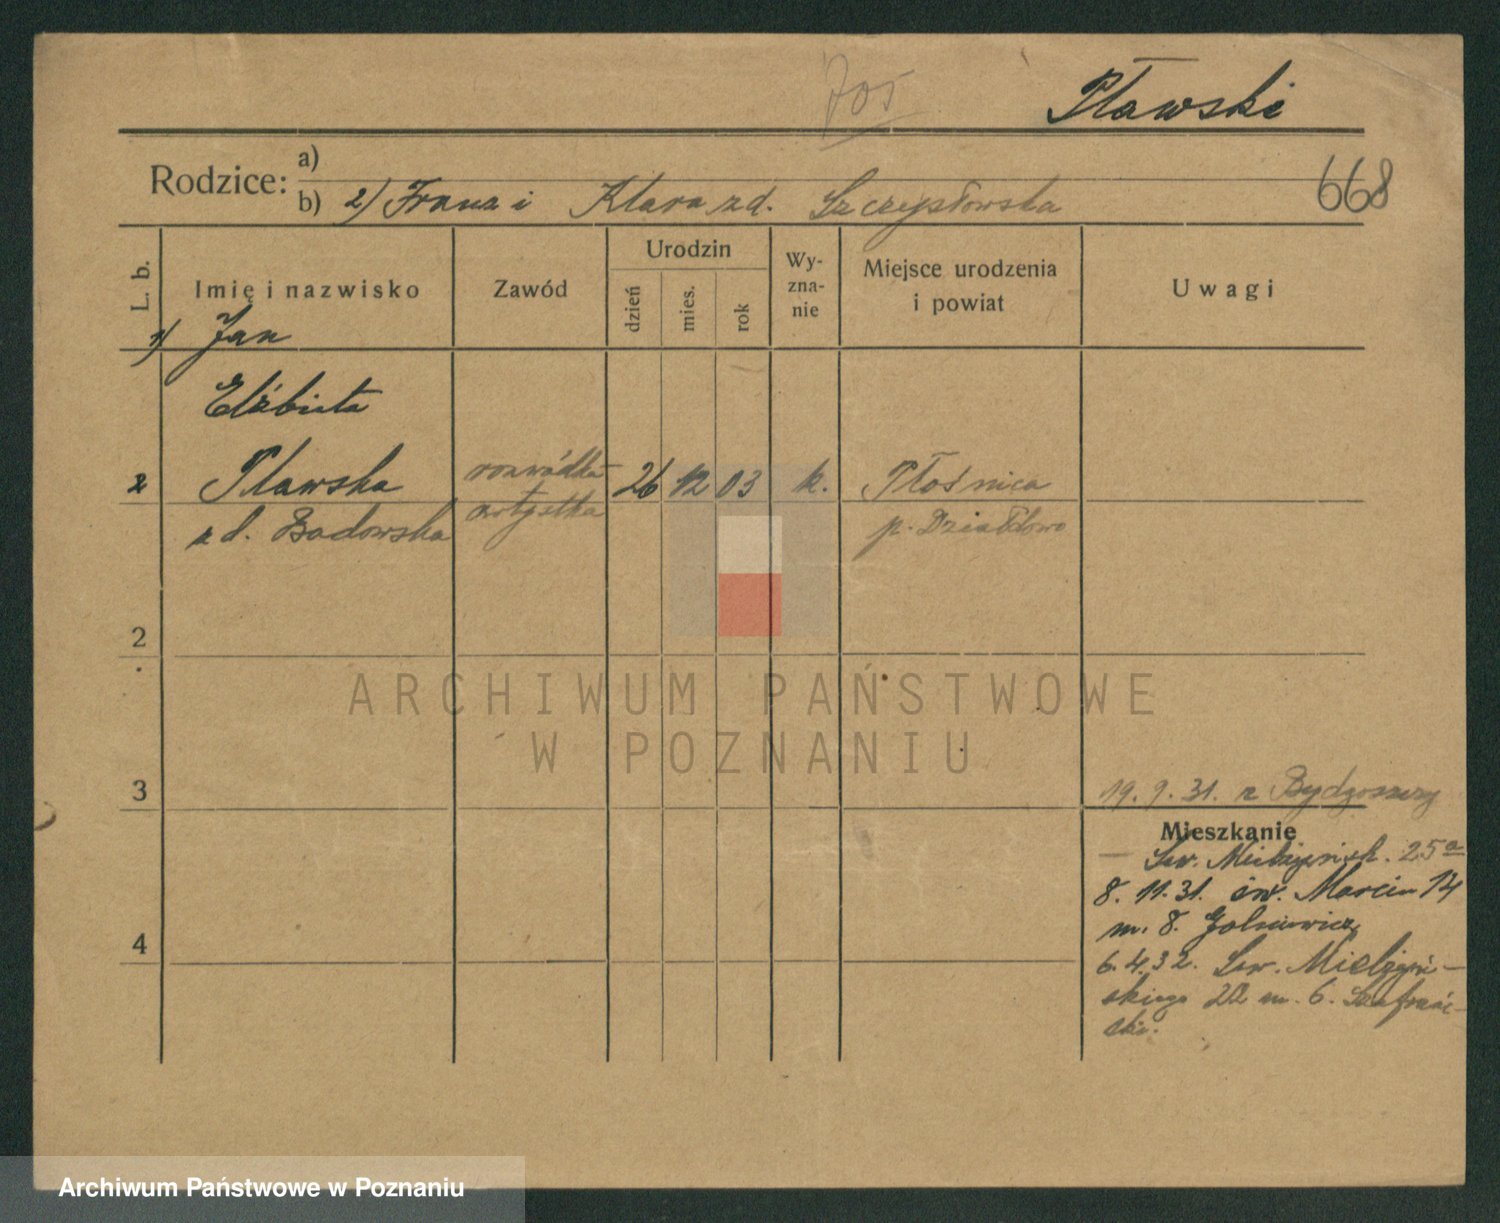 Pławski
668
Rodzice: a)
b) 2) Franz i Klara zd. Szczysłowska
L. b.
Imię i nazwisko
Zawód
Urodzin
dzień
mies.
rok
Wy-
zna-
nie
Miejsce urodzenia
i powiat
Uwagi
1) Jan
Elżbieta
2 Pławska rozwódka 26 12 03 k. Płośnica
z d. Badowska artystka p. Działdowo
2
3
19. 9. 31. z Bydgoszczy
Mieszkanie
Sew. Mielżyńsk. 25a
8. 11. 31. św. Marcin 14
m. 8.
4
6. 4. 32. Sew. Mielżyń-
skiego 22 m. 6. Szafrań-
ski.
ARCHIWUM PAŃSTWOWE
W POZNANIU
Archiwum Państwowe w Poznaniu